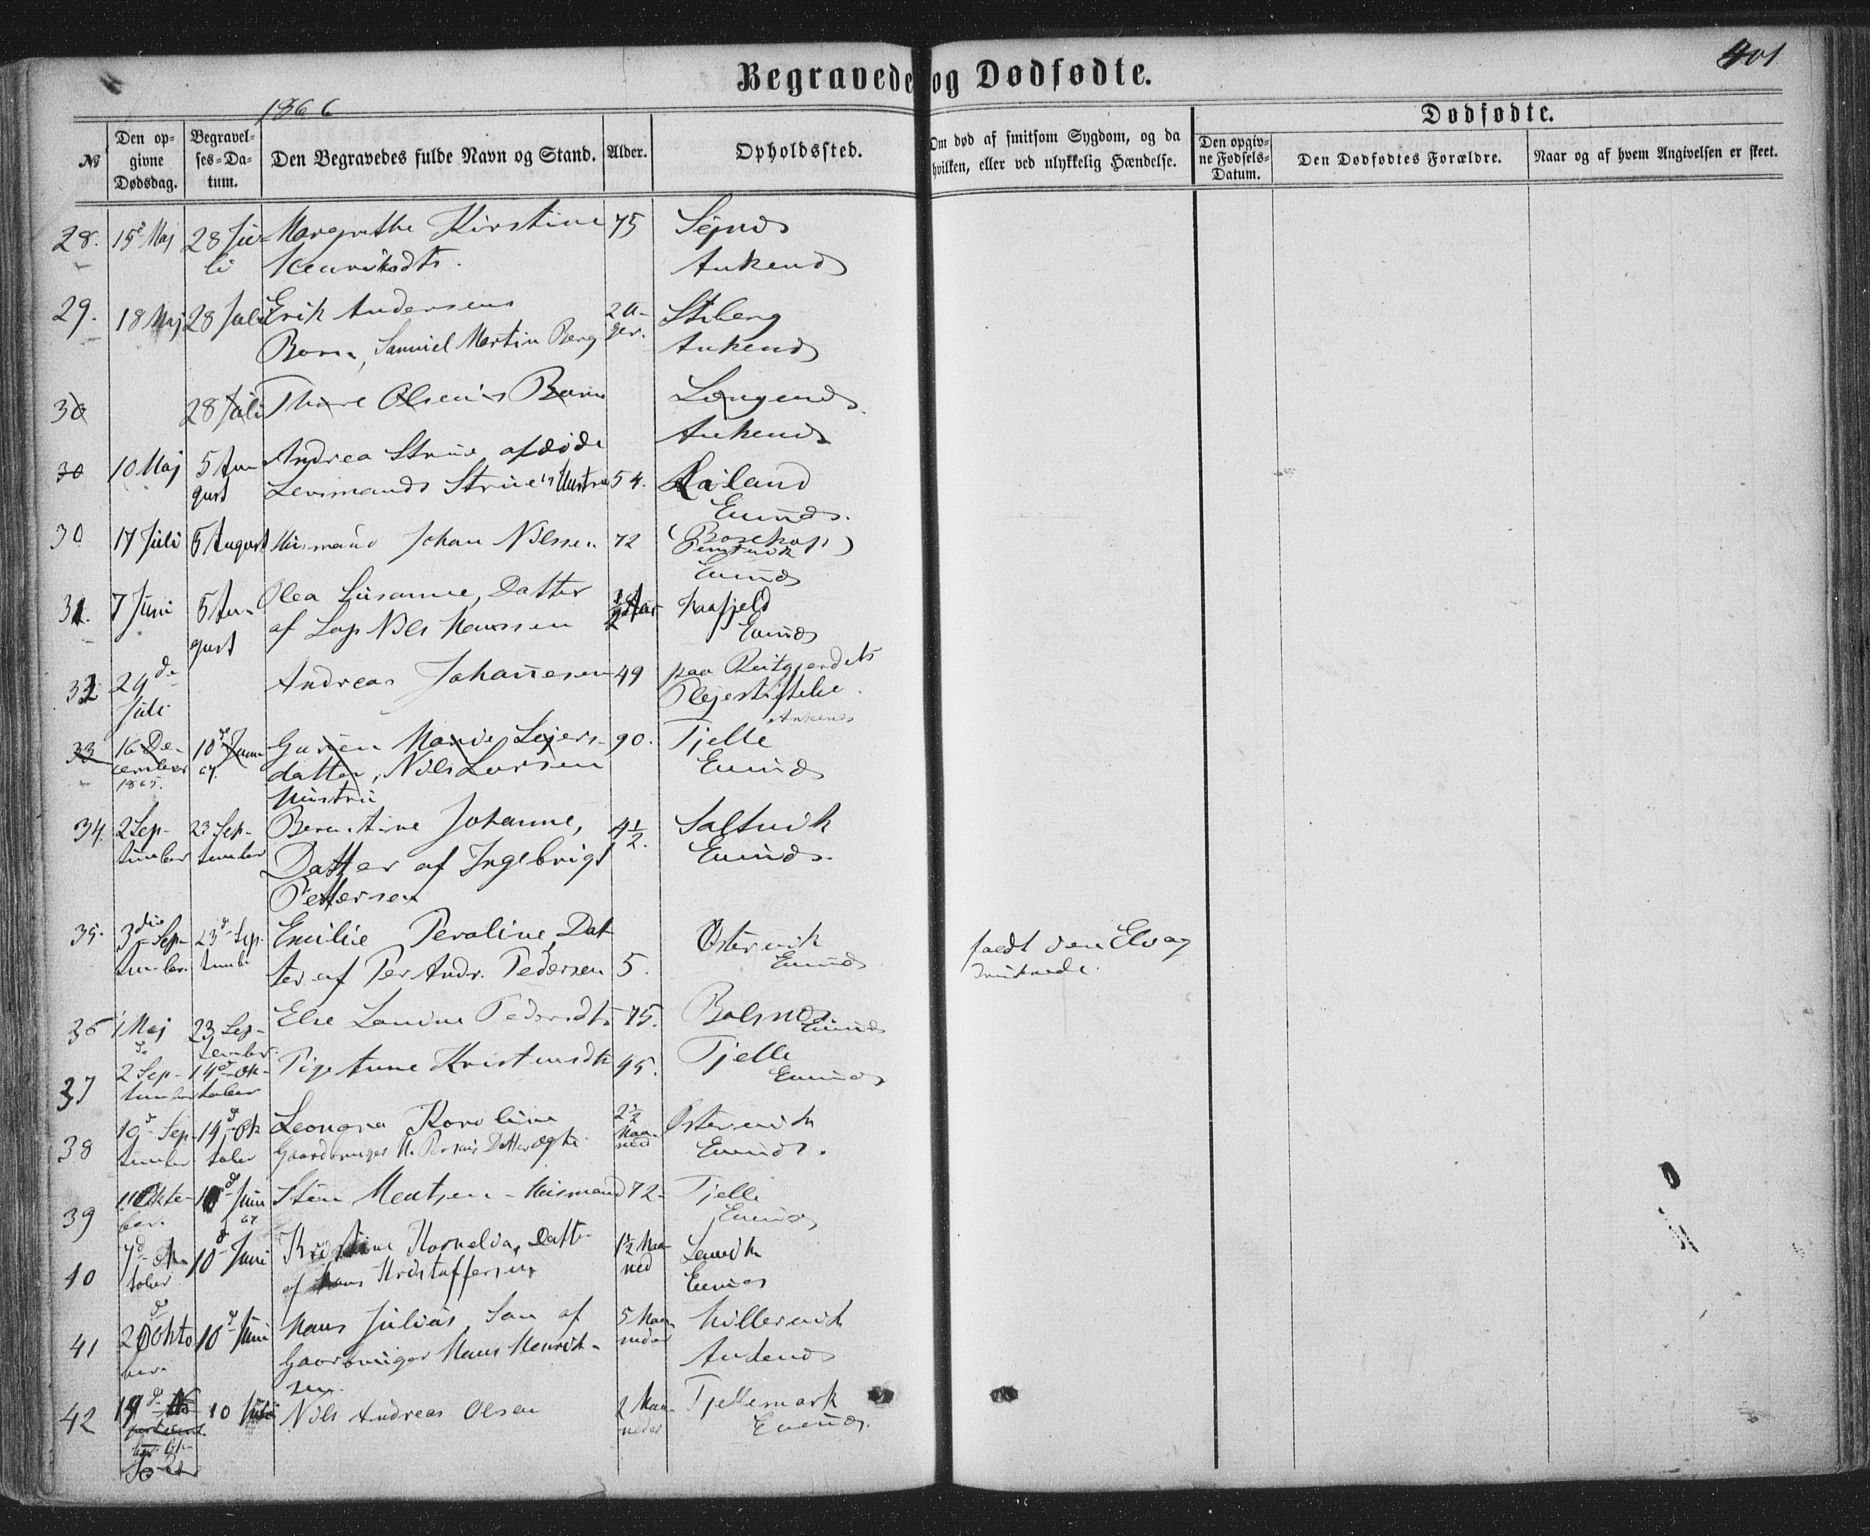 401
Begravede og Dødfødte.
1866
Dødfødte.
№
Den opgivne Dødsdag.
Begravelses-Datum.
Den Begravedes fulde Navn og Stand.
Alder.
Opholdssted.
Om død af smitsom Sygdom, og da hvilken, eller ved ulykkelig Hændelse.
Den opgivne Fødsels-Datum.
Den Dødfødtes Forældre.
Naar og af hvem Angivelsen er skeet.
28. 15 Maj 28 Juli Margrethe Kirstine 75
Henriksdtr. Ankenes
29. 18 Maj 28 Juli Erik Andersens 2 Uger. Stiberg
Barn, Samuel Martin Berg Ankenes
30 28 Juli Thore Olsens Barn Lougenes
Ankenes
30 10 Maj 5 August Andrea Strüe, afdøde
Lensmands Strüe's Hustru 54. Liland
Evenes.
30 17 Juli 5 August Huusmand Johan Nilssen 72
Evenes
31. 7 Juni 5 August Olea Susanne, Datter Haafjeld
af Lap Nils Hanssen Evenes
32 29de Juli Andreas Johannesen 49 paa Reitgjerdets
Plejestiftelse.
Ankenes
33 16 December 1865. 10 Juni 67. Marie Sejersdatter, Nils Larsen 90. Tjelle
Hustru Evenes
34. 2 September 23 September Berntine Johanne, 4½. Saltvik
Datter af Ingebrigt Evenes.
Pettersen
35. 3die September 23 September Emilie Peroline Datter af Per Andr. Pedersen 5. Østervik
Evenes
faldt i en Elv og
druknede.
36 1 Maj 23 September Else Lovise Pedersdtr 75. Balsnes
Evenes
37 2 September 14 Oktober Pige Anne Kristensdtr 45. Tjelle
Evenes
38 10 September 14 Oktober Leonora Karoline 2½ Maaned Østervik
Gaardbruger H. Datter ægte. Evenes.
39 11 Oktober. 10 Juni 67 Sten Mentsen - Huusmand 72. Tjelle
Evenes
40 7 Oktober 10 Juni Kristine Kornelia, Datter 1½ Maaned Lenvik
af Hans Kristoffersen Evenes
41 20 Oktober. 10 Juni Hans Julius, Søn af 5 Maaneder
Gaardbruger Hans Henriksen. Ankenes
42 19 Oktober 10 Juni Nils Andreas Olsen 2 Maaneder Tjellemark
Evenes.